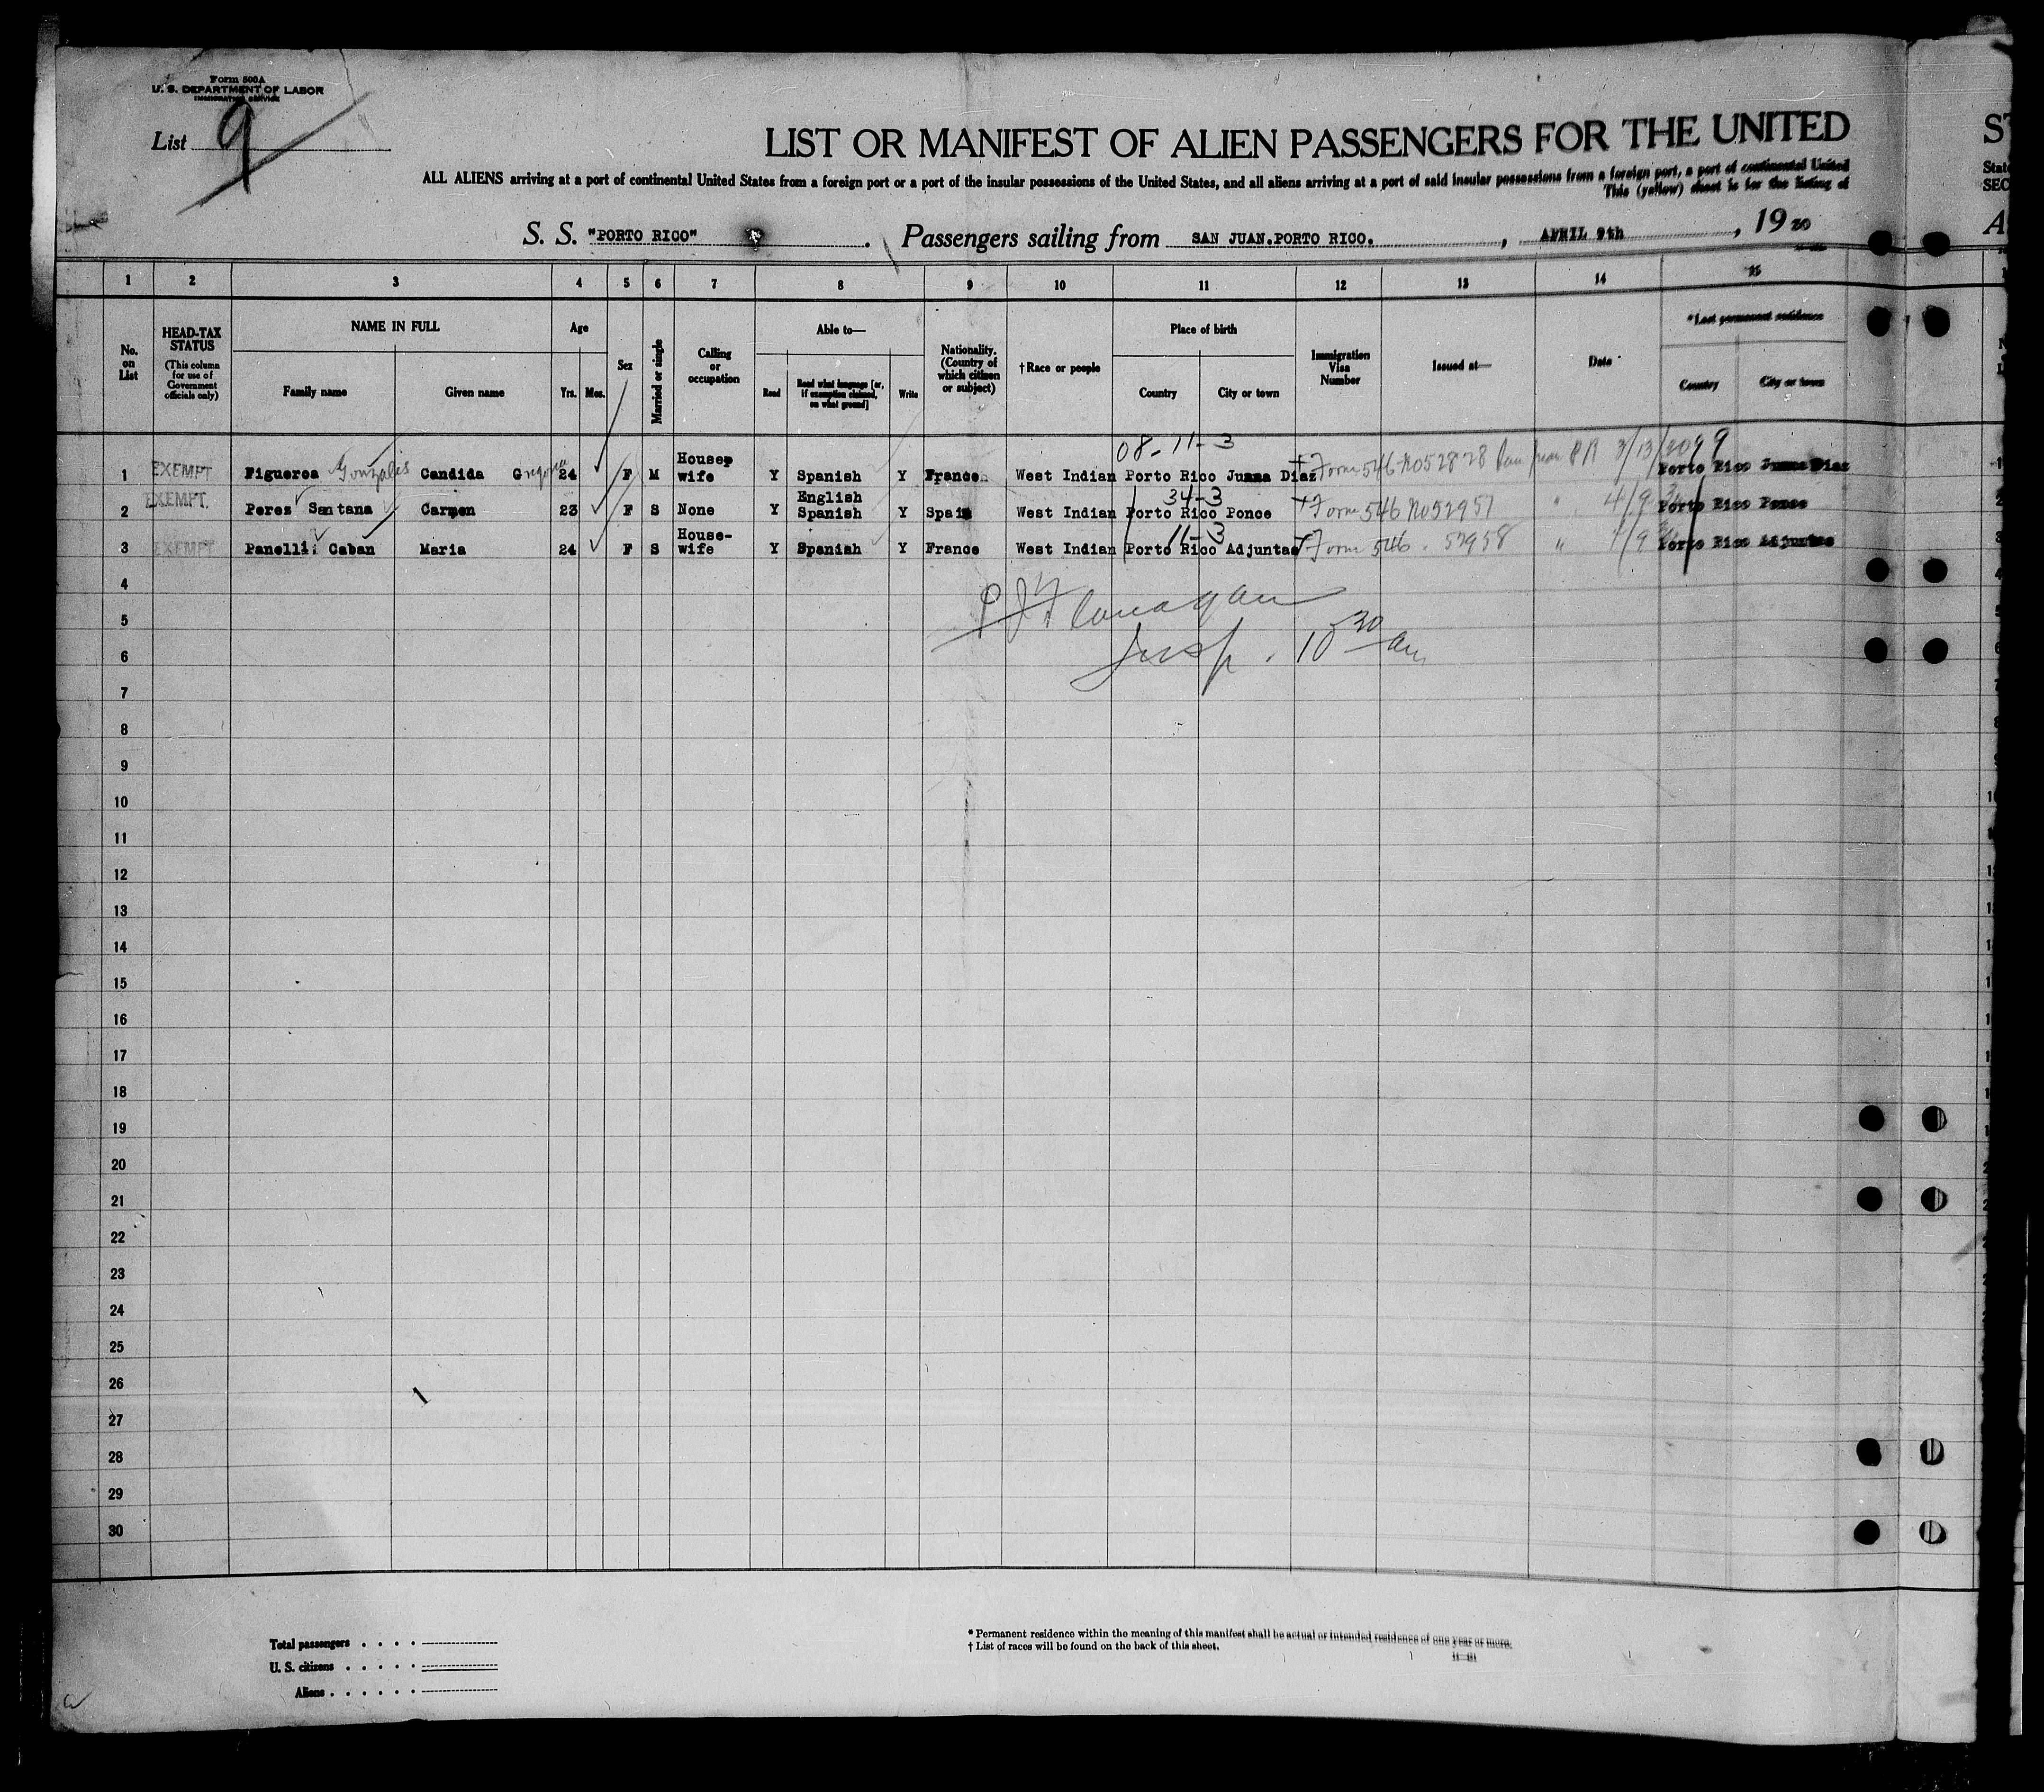 Form 500A
U. S. DEPARTMENT OF LABOR
IMMIGRATION SERVICE
List 9
LIST OR MANIFEST OF ALIEN PASSENGERS FOR THE UNITED
ST
ALL ALIENS arriving at a port of continental United States from a foreign port or a port of the insular possessions of the United States, and all aliens arriving at a port of said insular possessions from a foreign port, a port of continental United
State
This (yellow) sheet is for the listing of
SEC
S. S. "PORTO RICO" . Passengers sailing from SAN JUAN.PORTO RICO. , APRIL 9th , 1930
1 2 3 4 5 6 7 8 9 10 11 12 13 14 15
No. on List
HEAD-TAX STATUS
(This column for use of Government officials only)
NAME IN FULL
Family name Given name
Age
Yrs. Mos.
Sex
Married or single
Calling or occupation
Able to—
Read
Read what language [or, if exemption claimed, on what ground]
Write
Nationality. (Country of which citizen or subject)
†Race or people
Place of birth
Country City or town
Immigration Visa Number
Issued at—
Date
*Last permanent residence
Country City or town
08-11-3
99
1 EXEMPT Figueroa Gonzales Candida Gregoria 24 F M House wife Y Spanish Y France West Indian Porto Rico Juana Diaz Form 546 No 52828 San Juan P R 3/13/30 Porto Rico Juana Diaz
34-3
2 EXEMPT. Perez Santana Carmen 23 F S None Y English Spanish Y Spain West Indian Porto Rico Ponce Form 546 No 52951 " 4/9 Porto Rico Ponce
11-3
3 EXEMPT Panelli Caban Maria 24 F S House- wife Y Spanish Y France West Indian Porto Rico Adjuntas Form 546 . 52958 " 9 Porto Rico Adjuntas
P J Flanagan
Insp. 10 30 am
4
5
6
7
8
9
10
11
12
13
14
15
16
17
18
19
20
21
22
23
24
25
26
27
28
29
30
Total passengers . . . .
U. S. citizens . . . . .
Aliens . . . . . .
* Permanent residence within the meaning of this manifest shall be actual or intended residence of one year or more.
† List of races will be found on the back of this sheet.